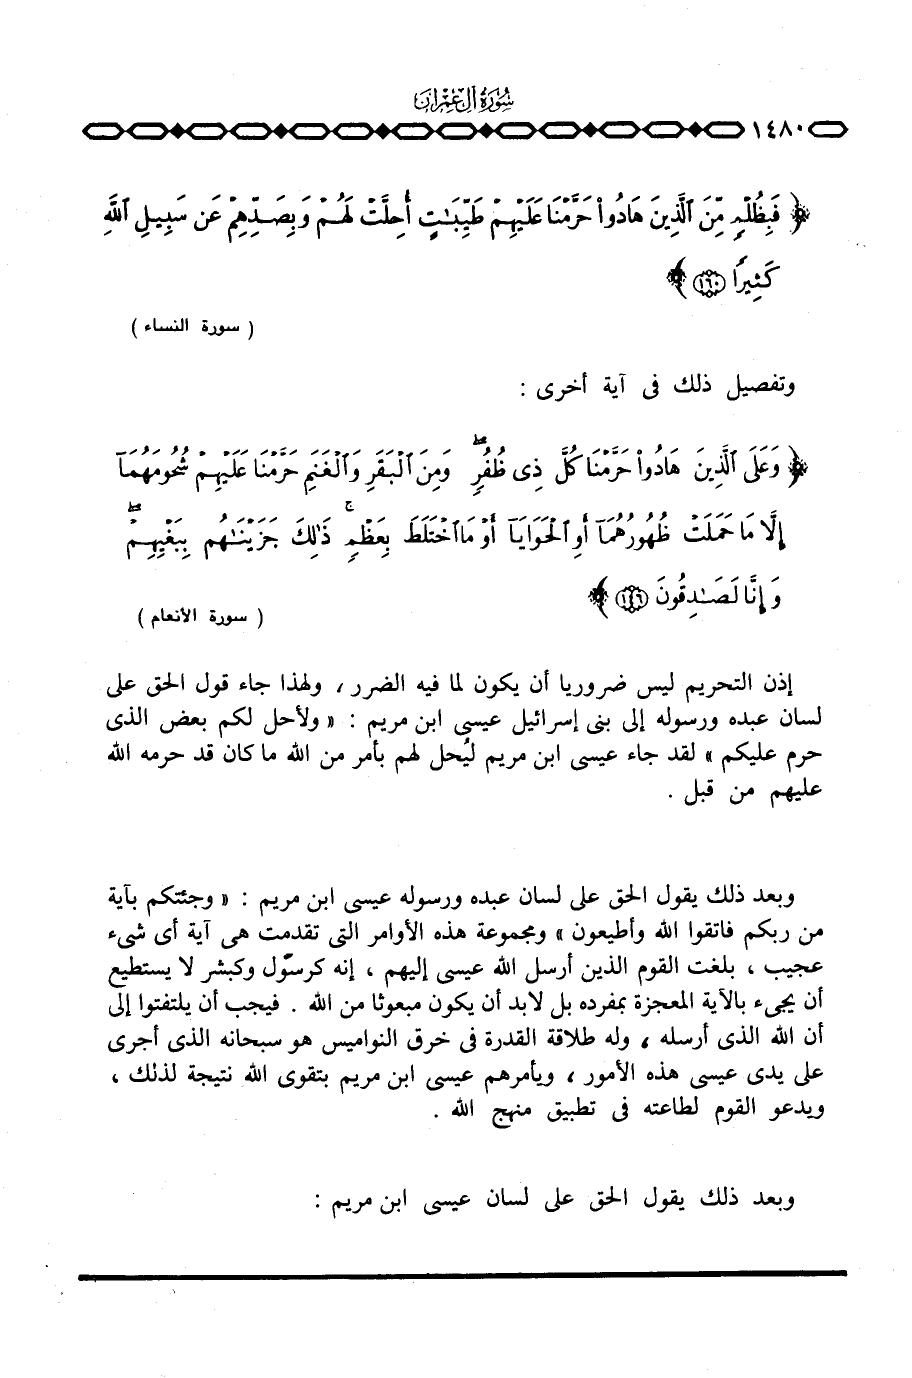 سُورَةُ آلِ عِمْرَانَ
١٤٨٠
﴿ فَبِظُلْمٍ مِّنَ ٱلَّذِينَ هَادُوا۟ حَرَّمْنَا عَلَيْهِمْ طَيِّبَٰتٍ أُحِلَّتْ لَهُمْ وَبِصَدِّهِمْ عَن سَبِيلِ ٱللَّهِ
كَثِيرًا ١٦٠ ﴾
( سورة النساء )
وتفصيل ذلك فى آية أخرى :
﴿ وَعَلَى ٱلَّذِينَ هَادُوا۟ حَرَّمْنَا كُلَّ ذِى ظُفُرٍۖ وَمِنَ ٱلْبَقَرِ وَٱلْغَنَمِ حَرَّمْنَا عَلَيْهِمْ شُحُومَهُمَآ
إِلَّا مَا حَمَلَتْ ظُهُورُهُمَآ أَوِ ٱلْحَوَايَآ أَوْ مَا ٱخْتَلَطَ بِعَظْمٍۚ ذَٰلِكَ جَزَيْنَٰهُم بِبَغْيِهِمْۖ
وَإِنَّا لَصَٰدِقُونَ ١٤٦ ﴾
( سورة الأنعام )
إذن التحريم ليس ضروريا أن يكون لما فيه الضرر ، ولهذا جاء قول الحق على
لسان عبده ورسوله إلى بنى إسرائيل عيسى ابن مريم : « ولأحل لكم بعض الذى
حرم عليكم » لقد جاء عيسى ابن مريم ليُحل لهم بأمر من الله ما كان قد حرمه الله
عليهم من قبل .
وبعد ذلك يقول الحق على لسان عبده ورسوله عيسى ابن مريم : « وجئتكم بآية
من ربكم فاتقوا الله وأطيعون » ومجموعة هذه الأوامر التى تقدمت هى آية أى شىء
عجيب ، بلغت القوم الذين أرسل الله عيسى إليهم ، إنه كرسول وكبشر لا يستطيع
أن يجىء بالآية المعجزة بمفرده بل لابد أن يكون مبعوثا من الله . فيجب أن يلتفتوا إلى
أن الله الذى أرسله ، وله طلاقة القدرة فى خرق النواميس هو سبحانه الذى أجرى
على يدى عيسى هذه الأمور ، ويأمرهم عيسى ابن مريم بتقوى الله نتيجة لذلك ،
ويدعو القوم لطاعته فى تطبيق منهج الله .
وبعد ذلك يقول الحق على لسان عيسى ابن مريم :